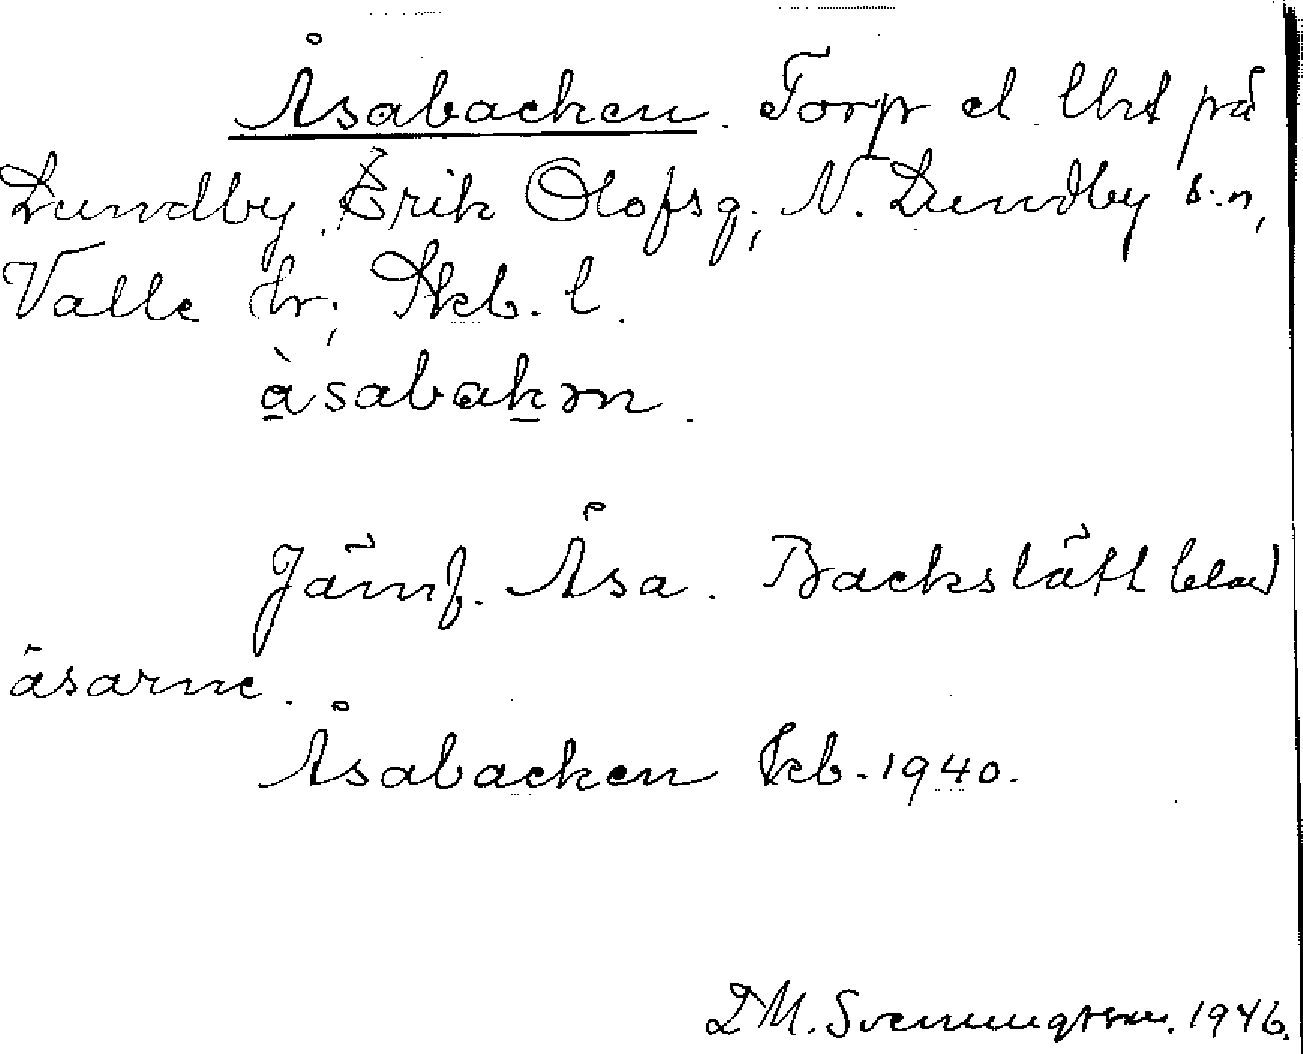 Åsabacken. Torp el. lht på
Lundby, Erik Olofsg., N. Lundby s:n,
Valle hr, Skb. l.
àsabakən.
Jämf. Åsa. Backslätt bland
åsarne.
Åsabacken Jkb. 1940.
D M. Svenningsson. 1946.